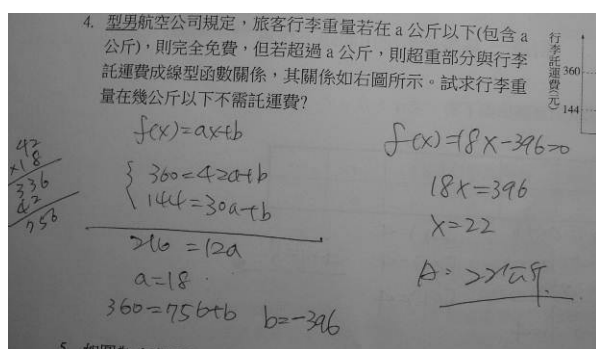 4. 型男航空公司規定，旅客行李重量若在 a 公斤以下(包含 a
公斤)，則完全免費，但若超過 a 公斤，則超重部分與行李
託運費成線型函數關係，其關係如右圖所示。試求行李重
量在幾公斤以下不需託運費?
行李託運費(元)
360
144
f(x)=ax+b
360=42a+b
144=30a+b
216=12a
a=18
360=756+b b=-396
42
×18
336
42
756
f(x)=18x-396=0
18x=396
x=22
A: 22公斤
5.